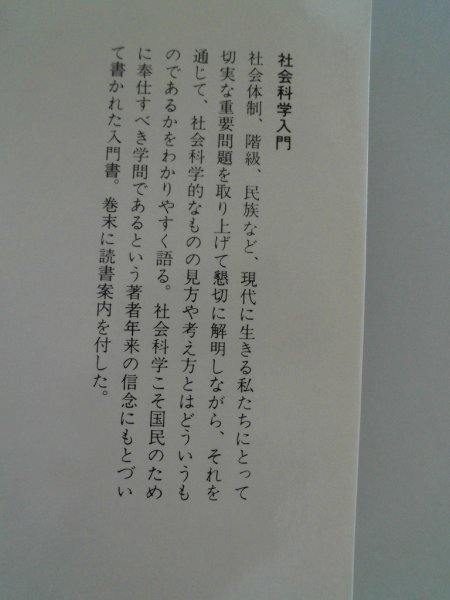 社会科学入門
社会体制、階級、民族など、現代に生きる私たちにとって
切実な重要問題を取り上げて懇切に解明しながら、それを
通じて、社会科学的なものの見方や考え方とはどういうも
のであるかをわかりやすく語る。社会科学こそ国民のため
に奉仕すべき学問であるという著者年来の信念にもとづい
て書かれた入門書。巻末に読書案内を付した。